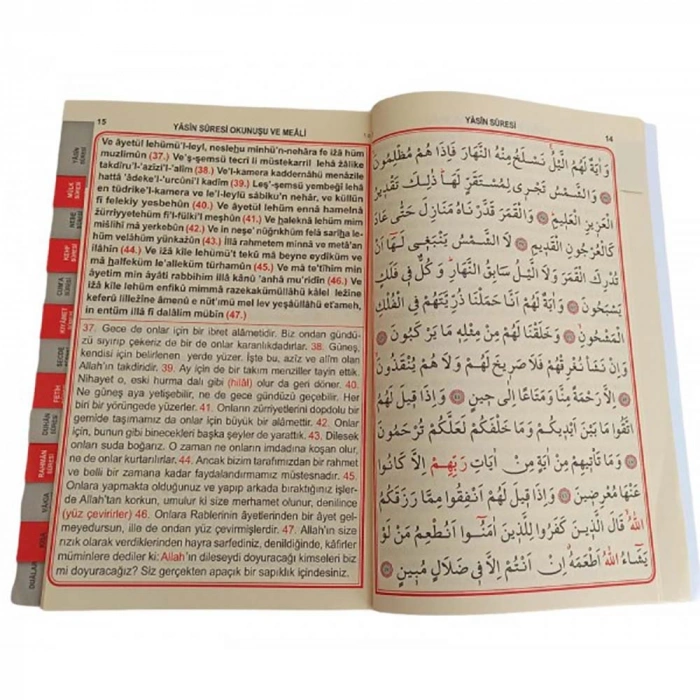 15
YÂSÎN SÛRESİ OKUNUŞU VE MEÂLİ
Ve âyetül lehümü'l-leyl, neslehu minhü'n-nehâra fe iżâ hüm
muzlimûn (37.) Ve'ş-şemsü tecrî li müstekarril lehâ żâlike
takdîru'l-'azîzi'l-'alîm (38.) Ve'l-kamera kaddernâhü menâzile
hattâ 'âdeke'l-'urcûni'l kadîm (39.) Leş-şemsü yembeğî lehâ
en tüdrike'l-kamera ve le'l-leylü sâbiku'n nehâr, ve küllün
fî felekiy yesbehûn (40.) Ve âyetül lehüm ennâ hamelnâ
żürriyyetehüm fi'l-fülki'l meşhûn (41.) Ve halaknâ lehüm mim
mišlihî mâ yerkebûn (42.) Ve in neşe' nüğrıkhüm felâ sarîha le-
hüm velâhüm yünkażûn (43.) İllâ rahmetem minnâ ve metâ'an
ilâhîn (44.) Ve iżâ kîle lehümü't tekû mâ beyne eydîküm ve
mâ halfeküm le'alleküm türhamûn (45.) Ve mâ te'tîhim min
âyetim min âyâti rabbihim illâ kânû 'anhâ mu'ridîn (46.) Ve
iżâ kîle lehüm enfikû mimmâ razekakümüllâhü kâlel leżîne
keferû lillezîne âmenû e nüt'ımü mel lev yeşâüllâhü et'ameh,
in entüm illâ fî dalâlim mübîn (47.)
37. Gece de onlar için bir ibret alâmetidir. Biz ondan gündü-
zü sıyırıp çekeriz de bir de onlar karanlıkdadırlar. 38. Güneş,
kendisi için belirlenen yerde yüzer. İşte bu, azîz ve alîm olan
Allah'ın takdiridir. 39. Ay için de bir takım menziller tayin ettik.
Nihayet o, eski hurma dalı gibi (hilâl) olur da geri döner. 40.
Ne güneş aya yetişebilir, ne de gece gündüzü geçebilir. Her
biri bir yörüngede yüzerler. 41. Onların zürriyetlerini dopdolu bir
gemide taşımamız da onlar için büyük bir alâmettir. 42. Onlar
için, bunun gibi binecekleri başka şeyler de yarattık. 43. Dilesek
onları suda boğarız. O zaman ne onların imdadına koşan olur,
ne de onlar kurtarılırlar. 44. Ancak bizim tarafımızdan bir rahmet
ve belli bir zamana kadar faydalandırmamız müstesnadır. 45.
Onlara yapmakta olduğunuz ve yapıp arkada bıraktığınız işler-
de Allah'tan korkun, umulur ki size merhamet olunur, denilince
(yüz çevirirler) 46. Onlara Rablerinin âyetlerinden bir âyet gel-
meyedursun, ille de ondan yüz çevirmişlerdir. 47. Allah'ın size
rızık olarak verdiklerinden hayra sarfediniz, denildiğinde, kâfirler
müminlere dediler ki: Allah'ın dileseydi doyuracağı kimseleri biz
mi doyuracağız? Siz gerçekten apaçık bir sapıklık içindesiniz.
YÂSÎN SÛRESİ
14
وَاٰيَةٌ لَهُمُ الَّيْلُ نَسْلَخُ مِنْهُ النَّهَارَ فَاِذَا هُمْ مُظْلِمُونَ
وَالشَّمْسُ تَجْرٖى لِمُسْتَقَرٍّ لَهَا ذٰلِكَ تَقْدٖيرُ
الْعَزٖيزِ الْعَلٖيمِ وَالْقَمَرَ قَدَّرْنَاهُ مَنَازِلَ حَتّٰى عَادَ
كَالْعُرْجُونِ الْقَدٖيمِ لَا الشَّمْسُ يَنْبَغٖى لَهَا اَنْ
تُدْرِكَ الْقَمَرَ وَلَا الَّيْلُ سَابِقُ النَّهَارِ وَكُلٌّ فٖى فَلَكٍ
يَسْبَحُونَ وَاٰيَةٌ لَهُمْ اَنَّا حَمَلْنَا ذُرِّيَّتَهُمْ فِى الْفُلْكِ
الْمَشْحُونِ وَخَلَقْنَا لَهُمْ مِنْ مِثْلِهٖ مَا يَرْكَبُونَ
وَاِنْ نَشَاْ نُغْرِقْهُمْ فَلَا صَرٖيخَ لَهُمْ وَلَا هُمْ يُنْقَذُونَ
اِلَّا رَحْمَةً مِنَّا وَمَتَاعًا اِلٰى حٖينٍ وَاِذَا قٖيلَ لَهُمُ
اتَّقُوا مَا بَيْنَ اَيْدٖيكُمْ وَمَا خَلْفَكُمْ لَعَلَّكُمْ تُرْحَمُونَ
وَمَا تَاْتٖيهِمْ مِنْ اٰيَةٍ مِنْ اٰيَاتِ رَبِّهِمْ اِلَّا كَانُوا
عَنْهَا مُعْرِضٖينَ وَاِذَا قٖيلَ لَهُمْ اَنْفِقُوا مِمَّا رَزَقَكُمُ
اللّٰهُ قَالَ الَّذٖينَ كَفَرُوا لِلَّذٖينَ اٰمَنُوا اَنُطْعِمُ مَنْ لَوْ
يَشَاءُ اللّٰهُ اَطْعَمَهُ اِنْ اَنْتُمْ اِلَّا فٖى ضَلَالٍ مُبٖينٍ
YÂSÎN SÛRESİ
MÜLK SÛRESİ
NEBE SÛRESİ
KEHF SÛRESİ
CUM'A SÛRESİ
KIYÂMET
SECDE
FETİH
DUHÂN SÛRESİ
RAHMÂN SÛRESİ
VÂKIA
KISA
DUÂLAR